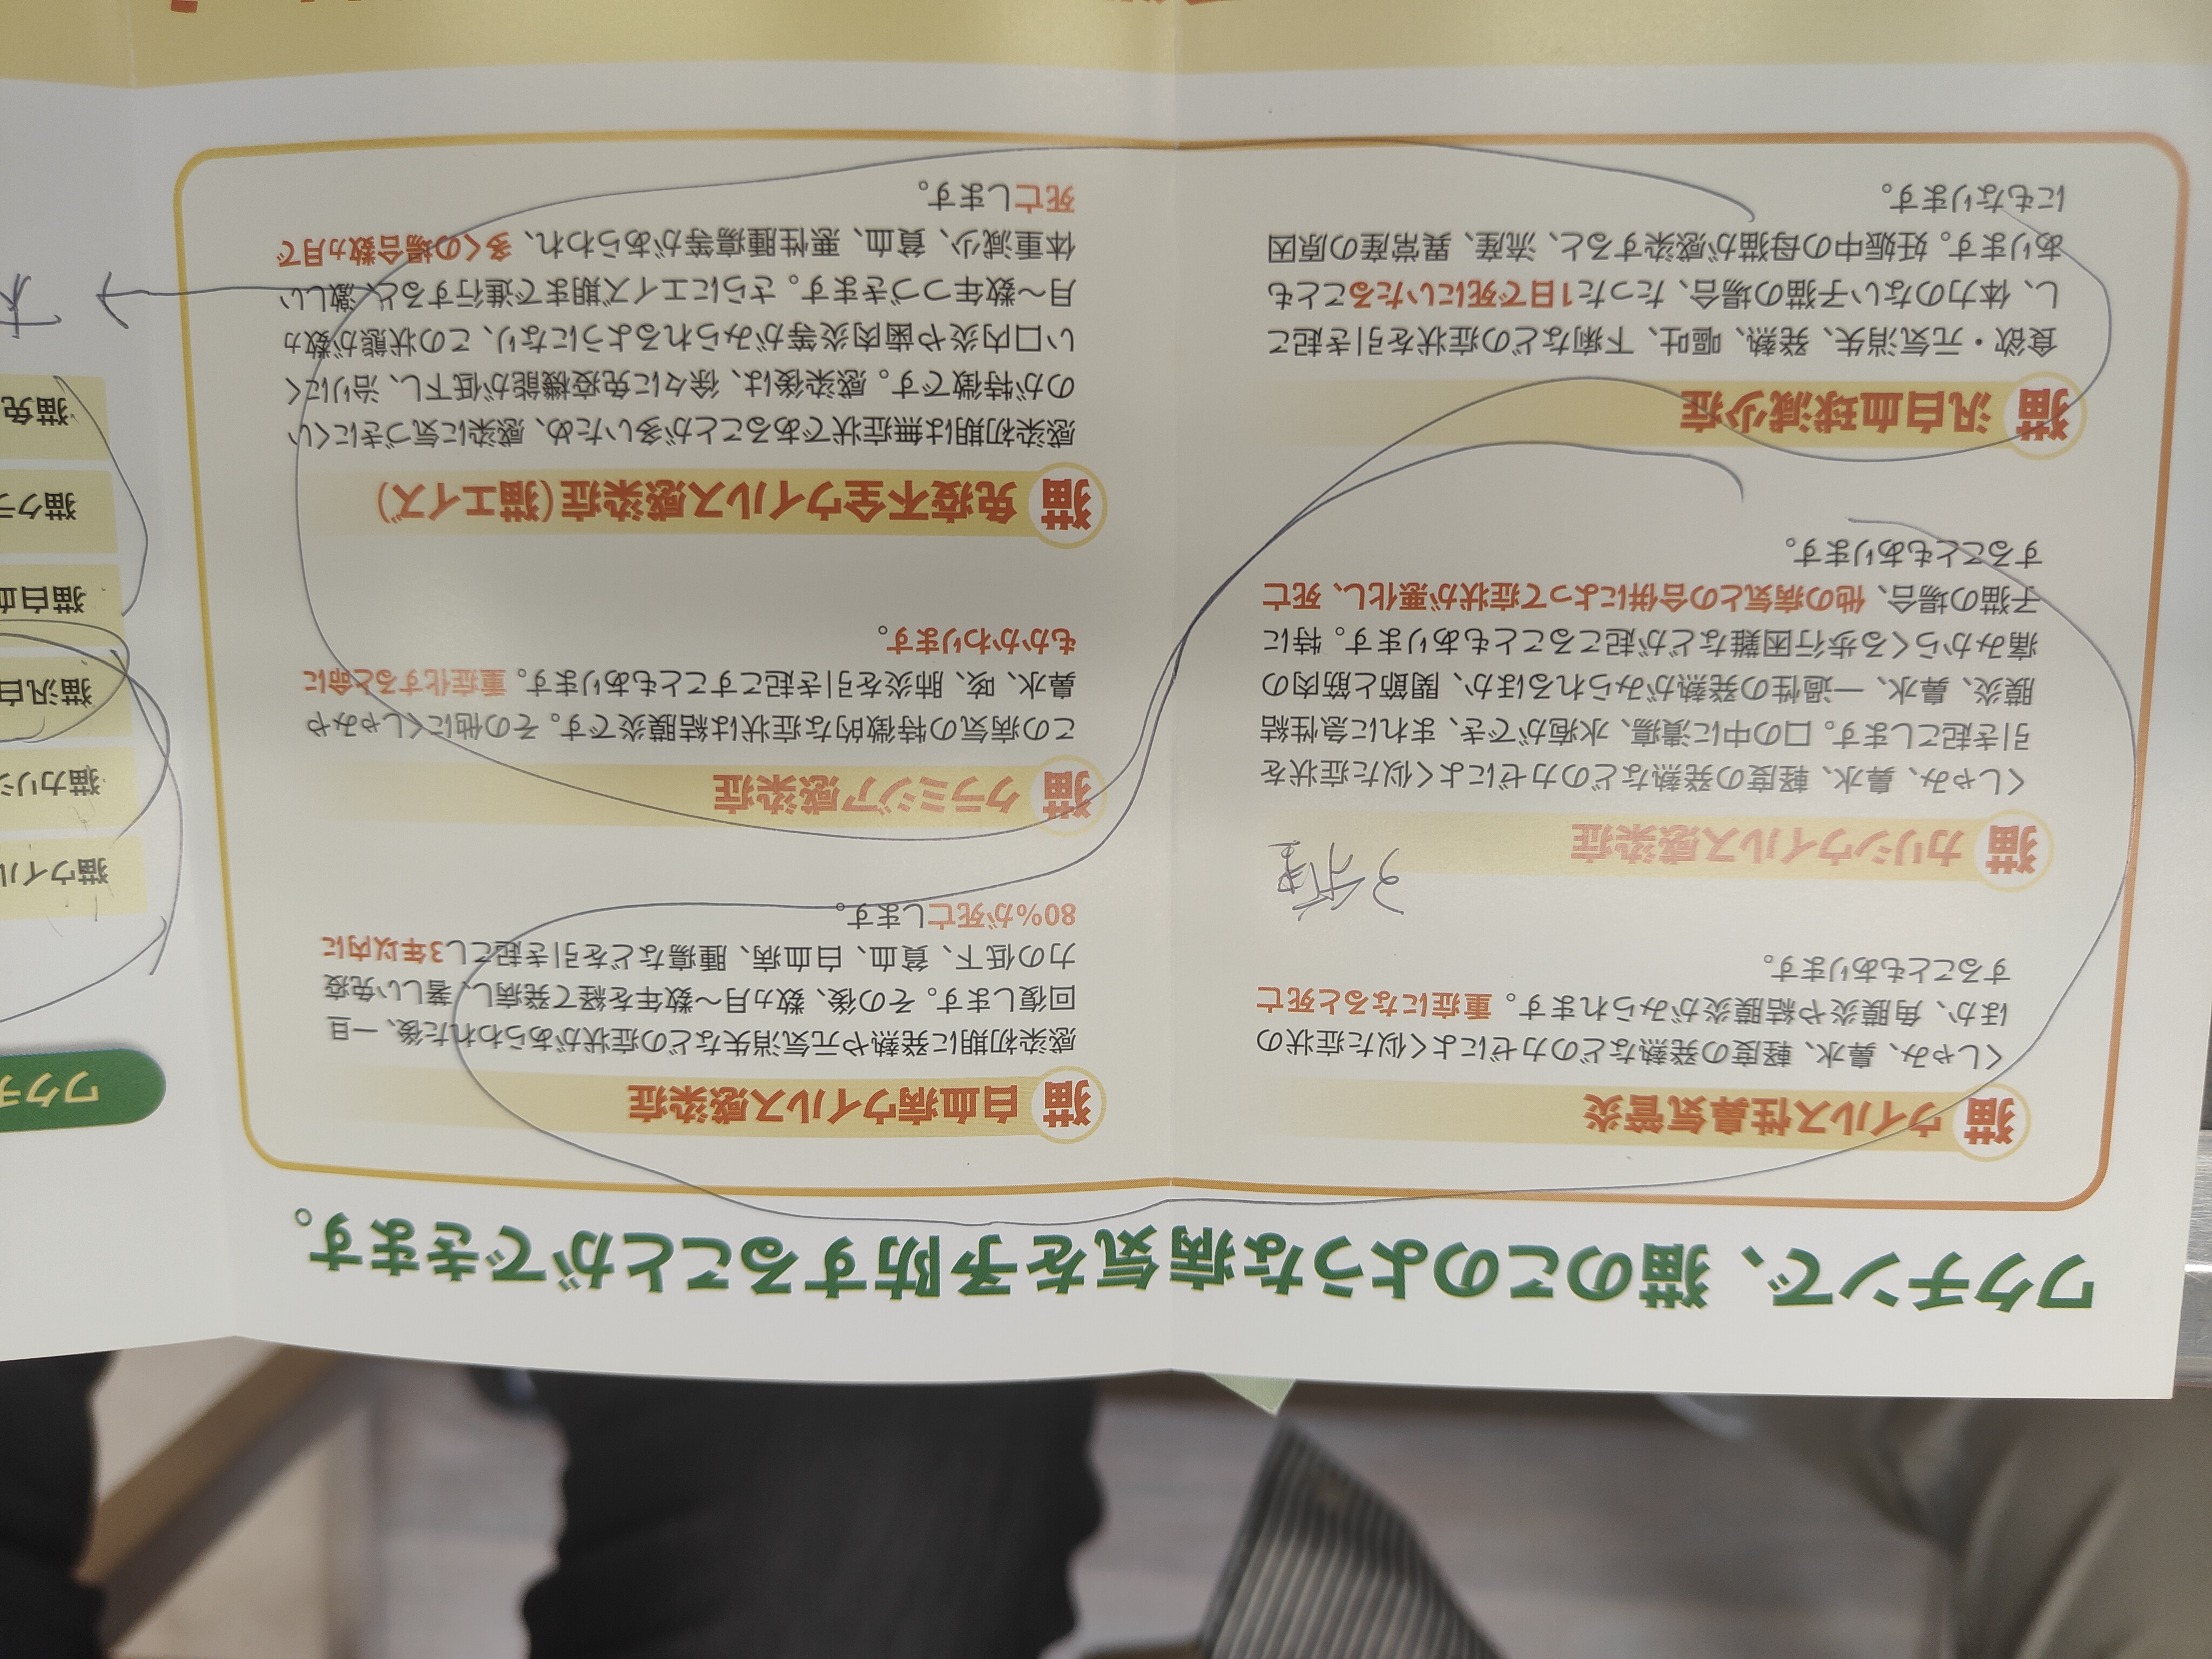 ワクチンで、猫のこのような病気を予防することができます。
猫 ウイルス性鼻気管炎
くしゃみ、鼻水、軽度の発熱などのカゼによく似た症状の
ほか、角膜炎や結膜炎がみられます。重症になると死亡
することもあります。
猫 カリシウイルス感染症
くしゃみ、鼻水、軽度の発熱などのカゼによく似た症状を
引き起こします。口の中に潰瘍、水疱ができ、まれに急性結
膜炎、鼻水、一過性の発熱がみられるほか、関節と筋肉の
痛みからくる歩行困難などが起こることもあります。特に
子猫の場合、他の病気との合併によって症状が悪化し、死亡
することもあります。
猫 汎白血球減少症
食欲・元気消失、発熱、嘔吐、下痢などの症状を引き起こ
し、体力のない子猫の場合、たった1日で死にいたることも
あります。妊娠中の母猫が感染すると、流産、異常産の原因
にもなります。
猫 白血病ウイルス感染症
感染初期に発熱や元気消失などの症状があらわれた後、一旦
回復します。その後、数ヵ月～数年を経て発病し、著しい免疫
力の低下、貧血、白血病、腫瘍などを引き起こし3年以内に
80%が死亡します。
猫 クラミジア感染症
この病気の特徴的な症状は結膜炎です。その他にくしゃみや
鼻水、咳、肺炎を引き起こすこともあります。重症化すると命に
もかかわります。
猫 免疫不全ウイルス感染症(猫エイズ)
感染初期は無症状であることが多いため、感染に気づきにくい
のが特徴です。感染後は、徐々に免疫機能が低下し、治りにく
い口内炎や歯肉炎等がみられるようになり、この状態が数ヵ
月～数年つづきます。さらにエイズ期まで進行すると、激しい
体重減少、貧血、悪性腫瘍等があらわれ、多くの場合数ヵ月で
死亡します。
3種
ワクチ
猫ウイル
猫カリシ
猫汎白
猫白血
猫クラ
猫免